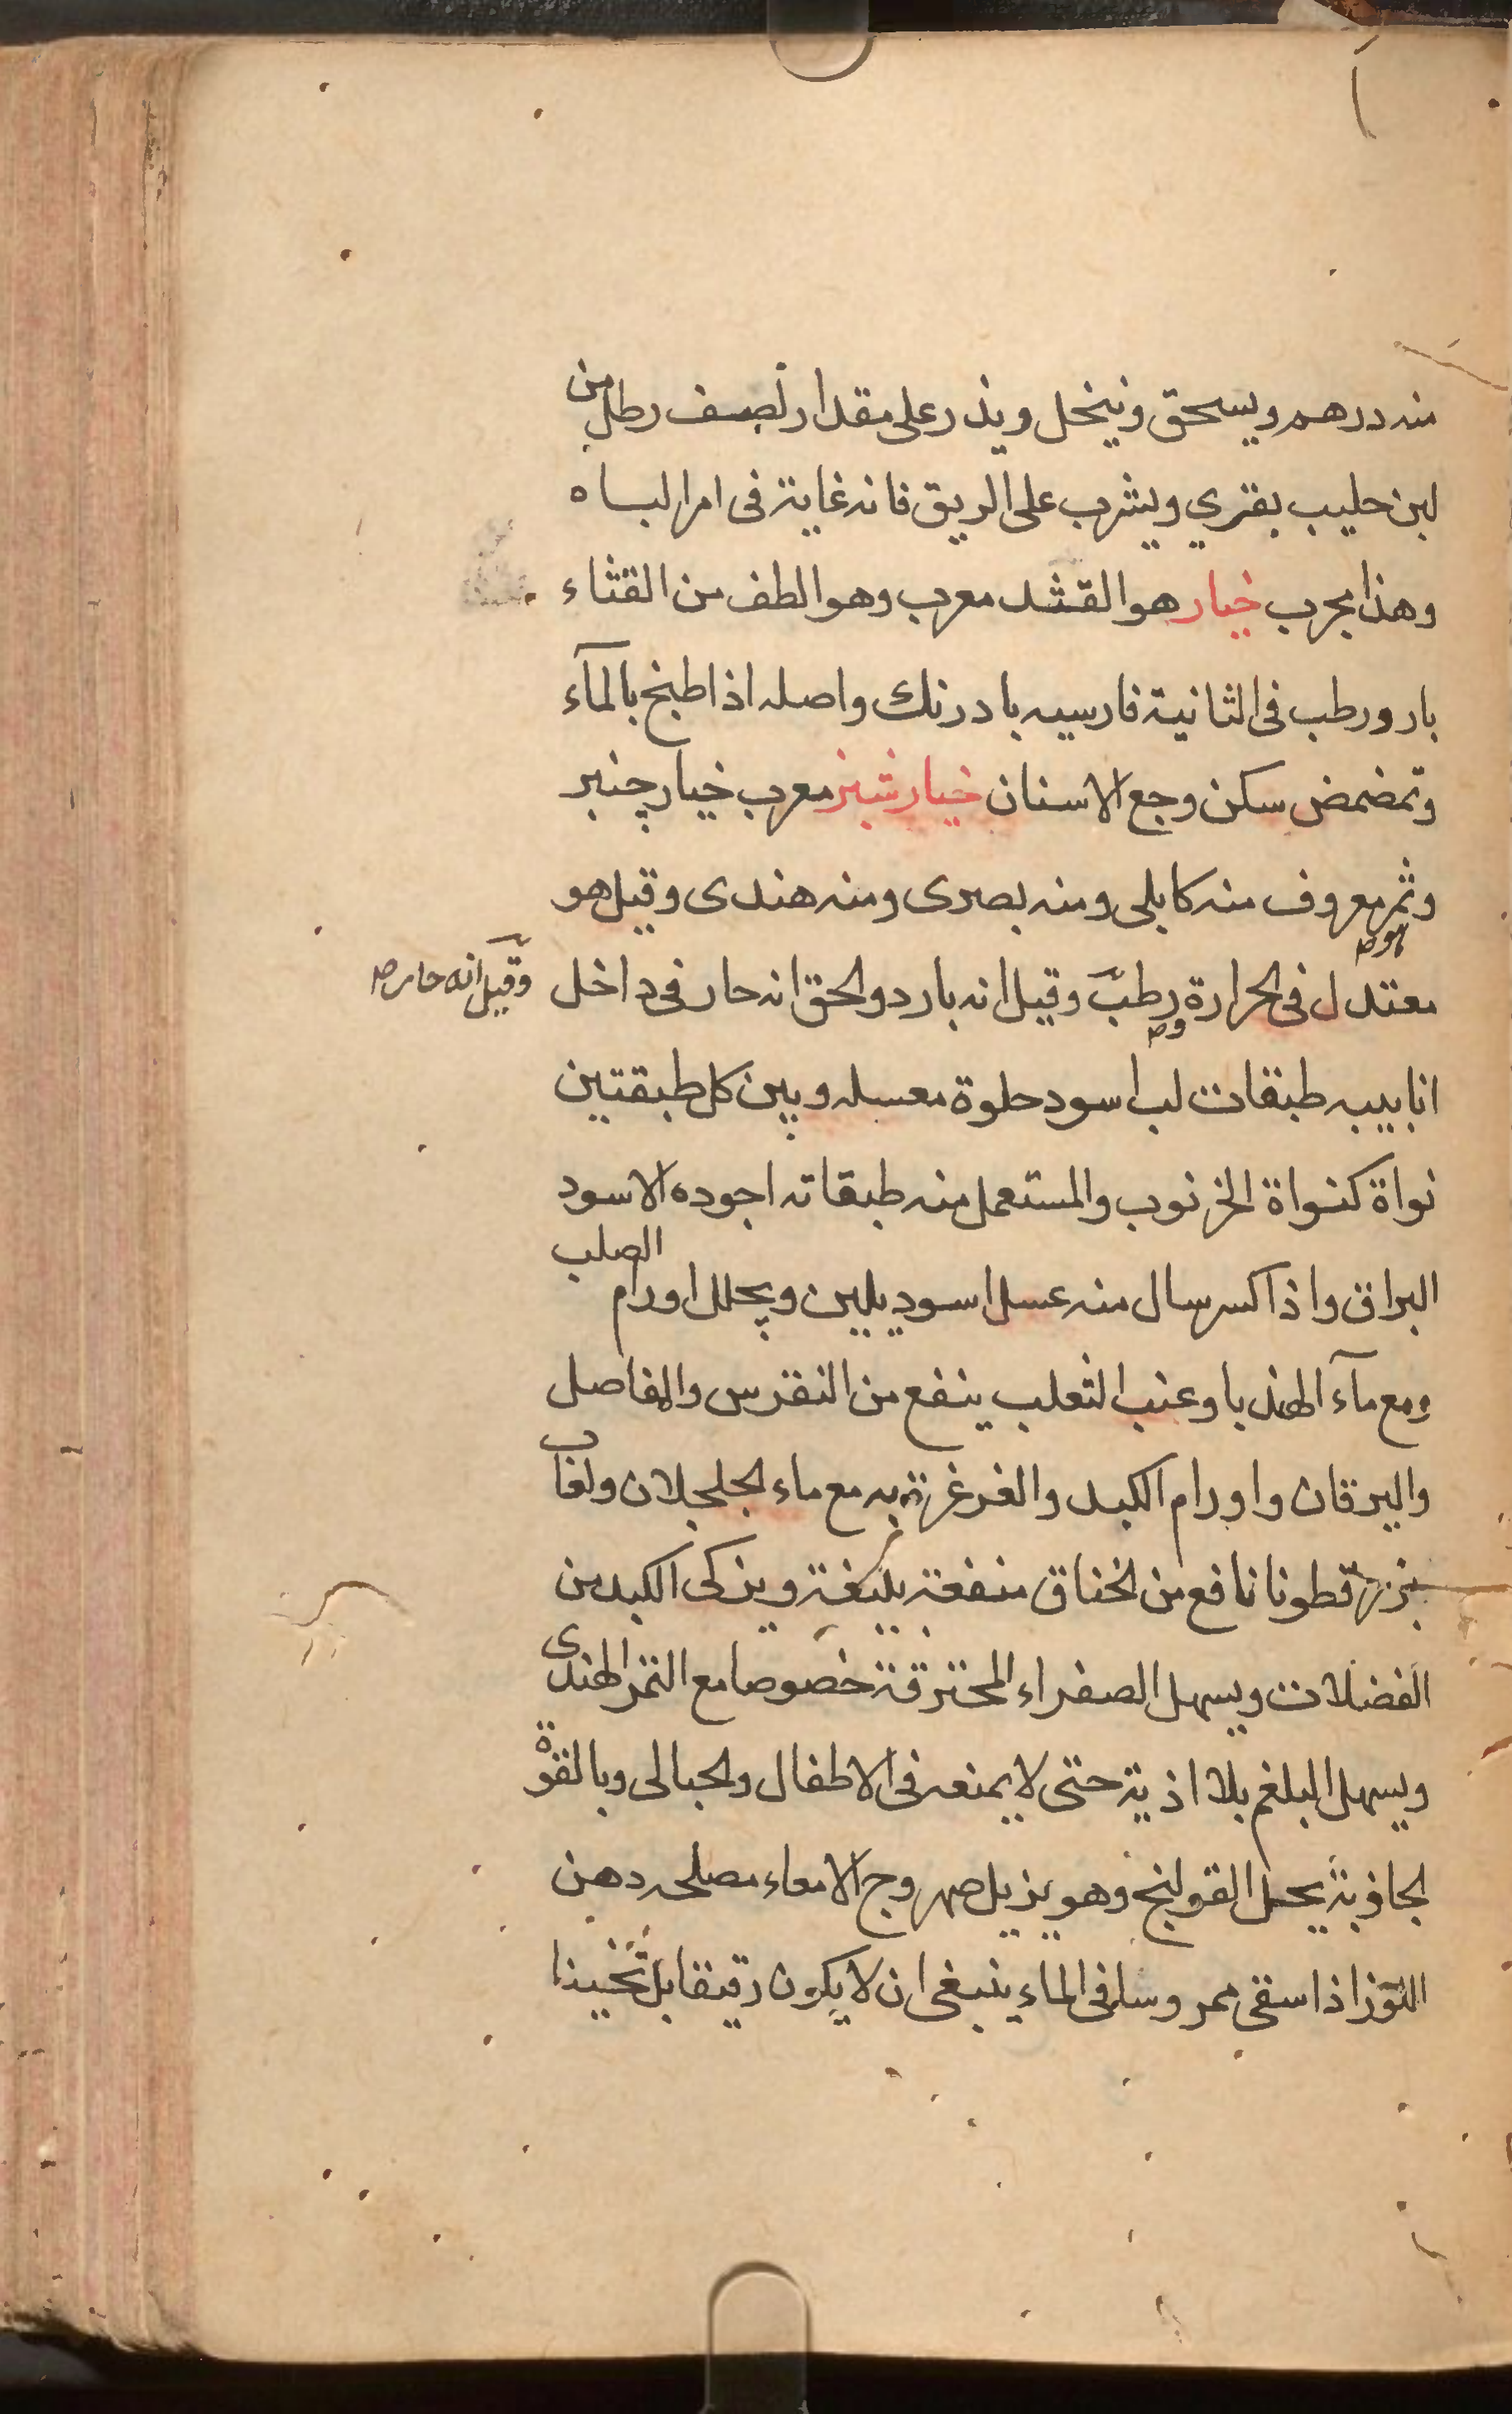 منه درهم ويسحق وينخل ويذر على مقدار نصف رطل من
لبن حليب بقري ويشرب على الريق فانه غاية فى امر الباه
وهذا مجرب خيار هو القثد معرب وهو الطف من القثاء
بارد ورطب فى الثانية فارسيه بادرنك واصله اذا طبخ بالمآء
وتمضمض سكن وجع الاسنان خيار شنبر معرب خيار چنبر
وثمر معروف منه كابلى ومنه بصرى ومنه هندى وقيل هو
معتدل فى الحرارة ورطب وقيل انه بارد والحق انه حار فى داخل
وقيل انه حار صح
انابيبه طبقات لب اسود حلوة معسله وبين كل طبقتين
نواة كنواة الخرنوب والمستعمل منه طبقاته اجوده الاسود
البراق واذا كسر سال منه عسل اسود يلين ويحلل اورام الصلب
ومع مآء الهندبا وعنب الثعلب ينفع من النقرس والمفاصل
واليرقان واورام الكبد والغرغرة به مع ماء الجلجلان ولعاب
بزر قطونا نافع من الخناق منفعة بليغة ويزكى الكبد من
الفضلات ويسهل الصفراء المحترقة خصوصا مع التمر الهندى
ويسهل البلغم بلا اذية حتى لا يمنعه فى الاطفال والحبالى وبالقوة
الجاذبة يحل القولنج وهو يزيل صهروج الامعاء مصلحه دهن
اللوز اذا سقى ممروسا فى الماء ينبغى ان لا يكون رقيقا بل ثخينا